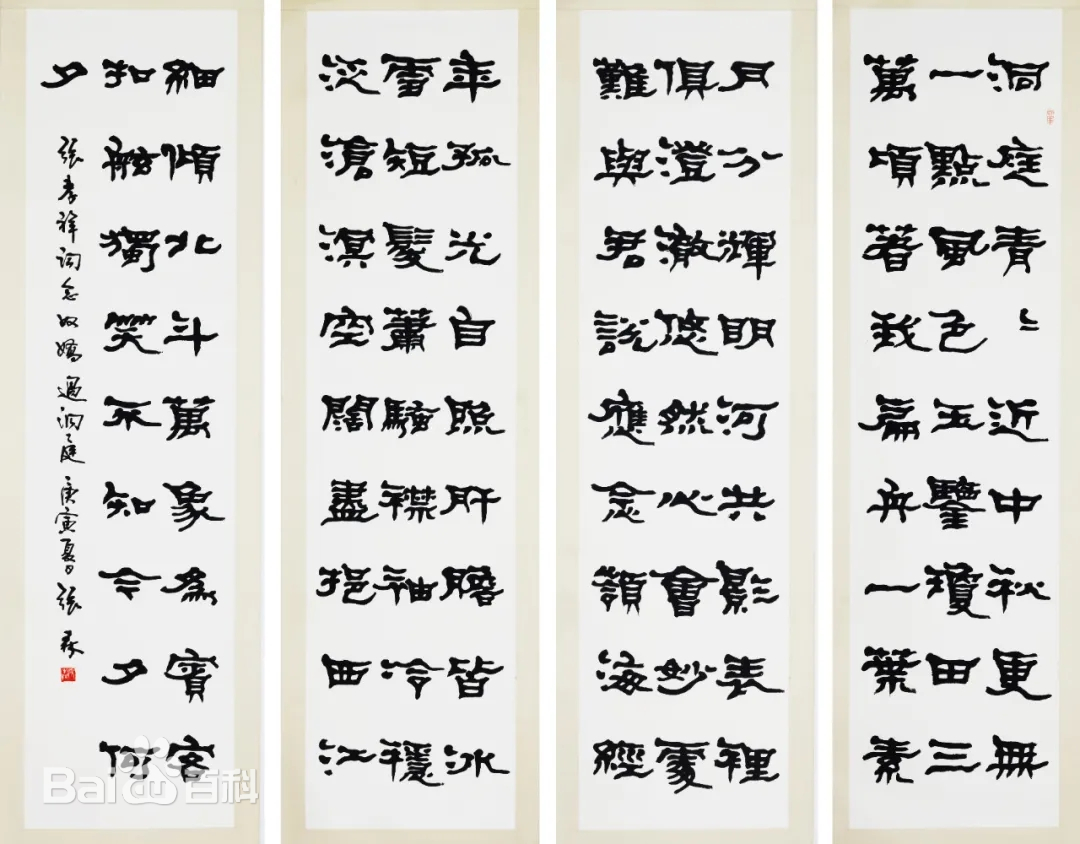 洞庭青草近中秋更無
一點風色玉鑒瓊田三
萬頃著我扁舟一葉素
月分輝明河共影表裡
俱澄澈悠然心會妙處
難與君說應念嶺海經
年孤光自照肝膽皆冰
雪短髮蕭騷襟袖冷穩
泛滄溟空闊盡挹西江
細傾北斗萬象為賓客
扣舷獨笑不知今夕何
夕
張孝祥詞念奴嬌過洞庭庚寅夏日張森
Bai百科